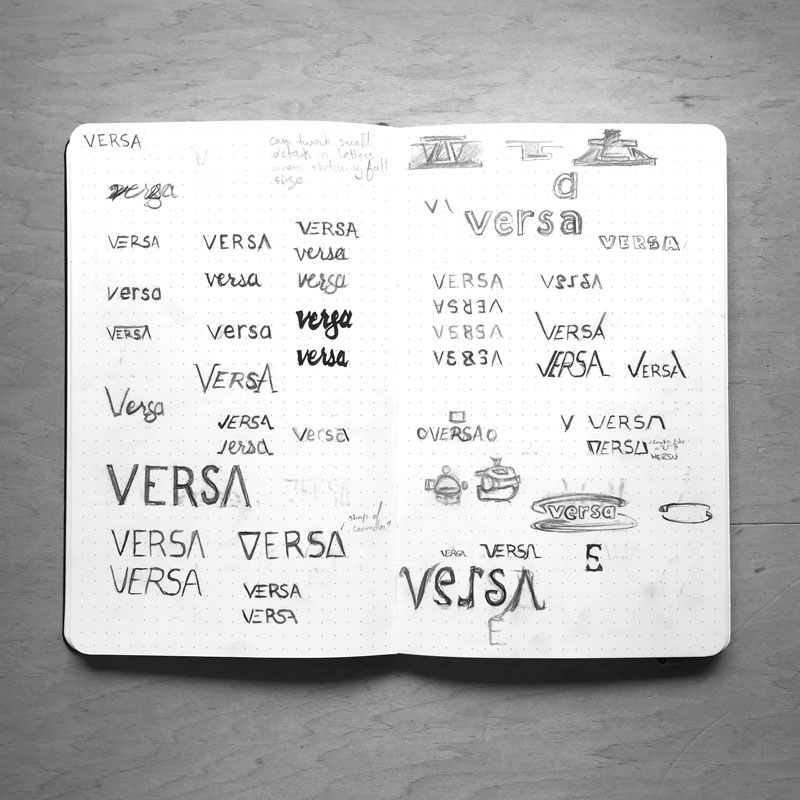 VERSA
can tweak small
details in letters
when sketching full
size
versa
VERSA
versa
VERSA
Versa
VERSA
versa
versa
VERSA
VERSA
versa
versa
versa
versa
VERSA
versa
versa
VERSA
shape of
connection?
VERSA
VERSA
VERSA
VERSA
VERSA
a
V \
versa
VERSA
VERSA
VERSA
VERSA
VERSA
versa
VERSA
VERSA
VERSA
OVERSAO
V VERSA
VERSA
looks like
a "U"?
VERSU
versa
VERSA
VERSA
E
versa
E